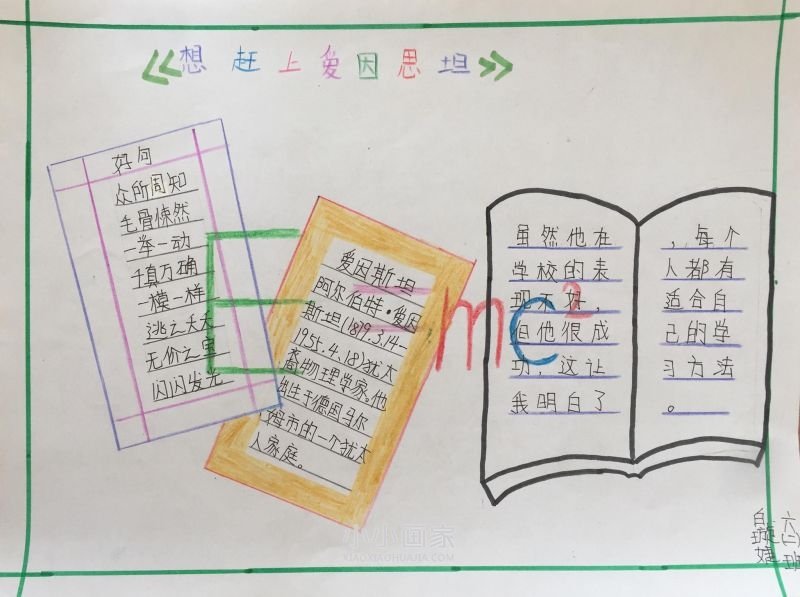 《想赶上爱因思坦》
好句
众所周知
毛骨悚然
一举一动
千真万确
一模一样
逃之夭夭
无价之宝
闪闪发光
E
爱因斯坦
阿尔伯特·爱因
斯坦(1819.3.14—
1955.4.18)犹太
裔物理学家。他
出生于德国乌尔
姆市的一个犹太
人家庭。
mc²
虽然他在
学校的表
现不好，
但他很成
功，这让
我明白了
，每个
人都有
适合自
己的学
习方法
。
六(二)班
小小画家
XIAOXIAOHUAJIA.COM